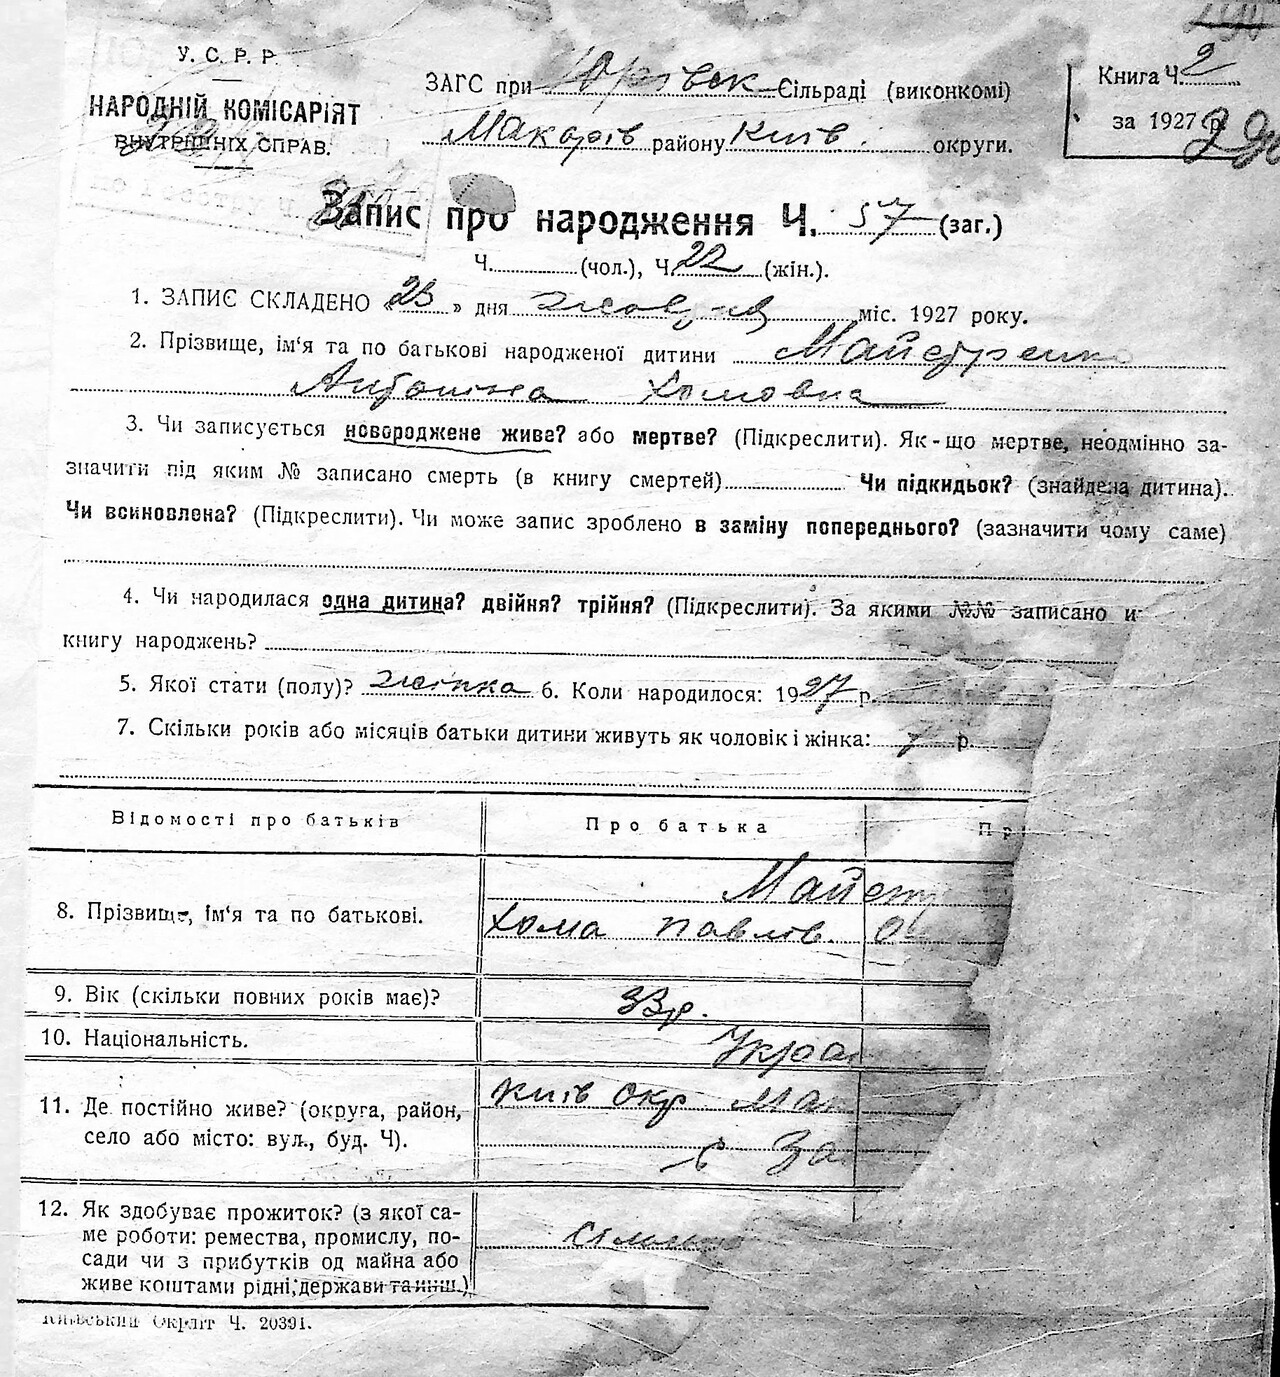 У. С. Р. Р.
НАРОДНІЙ КОМІСАРІЯТ
ВНУТРІШНІХ СПРАВ.
ЗАГС при Юрівск Сільраді (виконкомі)
Макарів району Київ. округи.
Книга Ч. 2
за 1927 р.
Запис про народження Ч. 57 (заг.)
Ч. (чол.), Ч. 22 (жін.).
1. ЗАПИС СКЛАДЕНО « 23 » дня жовтня міс. 1927 року.
2. Прізвище, ім'я та по батькові народженої дитини Майстренко
Антоніна Хомовна
3. Чи записується новороджене живе? або мертве? (Підкреслити). Як-що мертве, неодмінно за-
значити під яким № записано смерть (в книгу смертей) Чи підкидьок? (знайдена дитина).
Чи всиновлена? (Підкреслити). Чи може запис зроблено в заміну попереднього? (зазначити чому саме)
4. Чи народилася одна дитина? двійня? трійня? (Підкреслити). За якими №№ записано и
книгу народжень?
5. Якої стати (полу)? жінка 6. Коли народилося: 1927 р.
7. Скільки років або місяців батьки дитини живуть як чоловік і жінка: 7 р.
Відомості про батьків
Про батька
Пр
8. Прізвище, ім'я та по батькові.
Майст
Хома Павлів.
9. Вік (скільки повних років має)?
33 р.
10. Національність.
Укра
11. Де постійно живе? (округа, район,
село або місто: вул., буд. Ч).
Київ Окр Ма
с За
12. Як здобуває прожиток? (з якої са-
ме роботи: ремества, промислу, по-
сади чи з прибутків од майна або
живе коштами рідні, держави та инш.)
Київський Окрліт Ч. 20391.